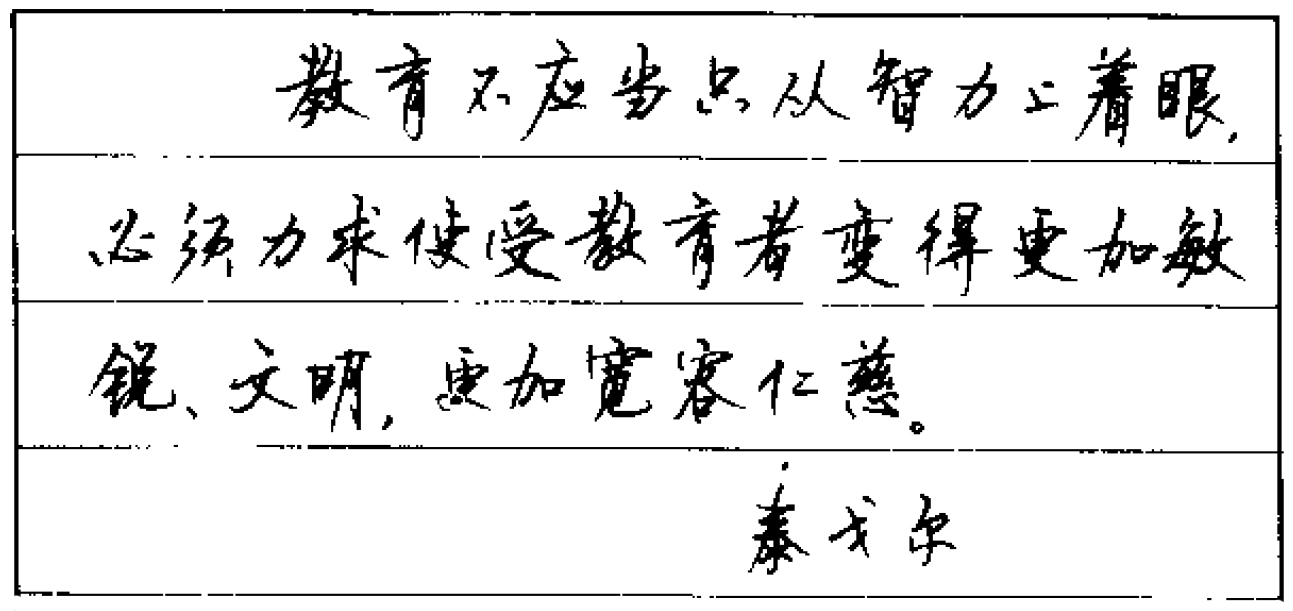 教育不应当只从智力上着眼，
必须力求使受教育者变得更加敏
锐、文明，更加宽容仁慈。
泰戈尔